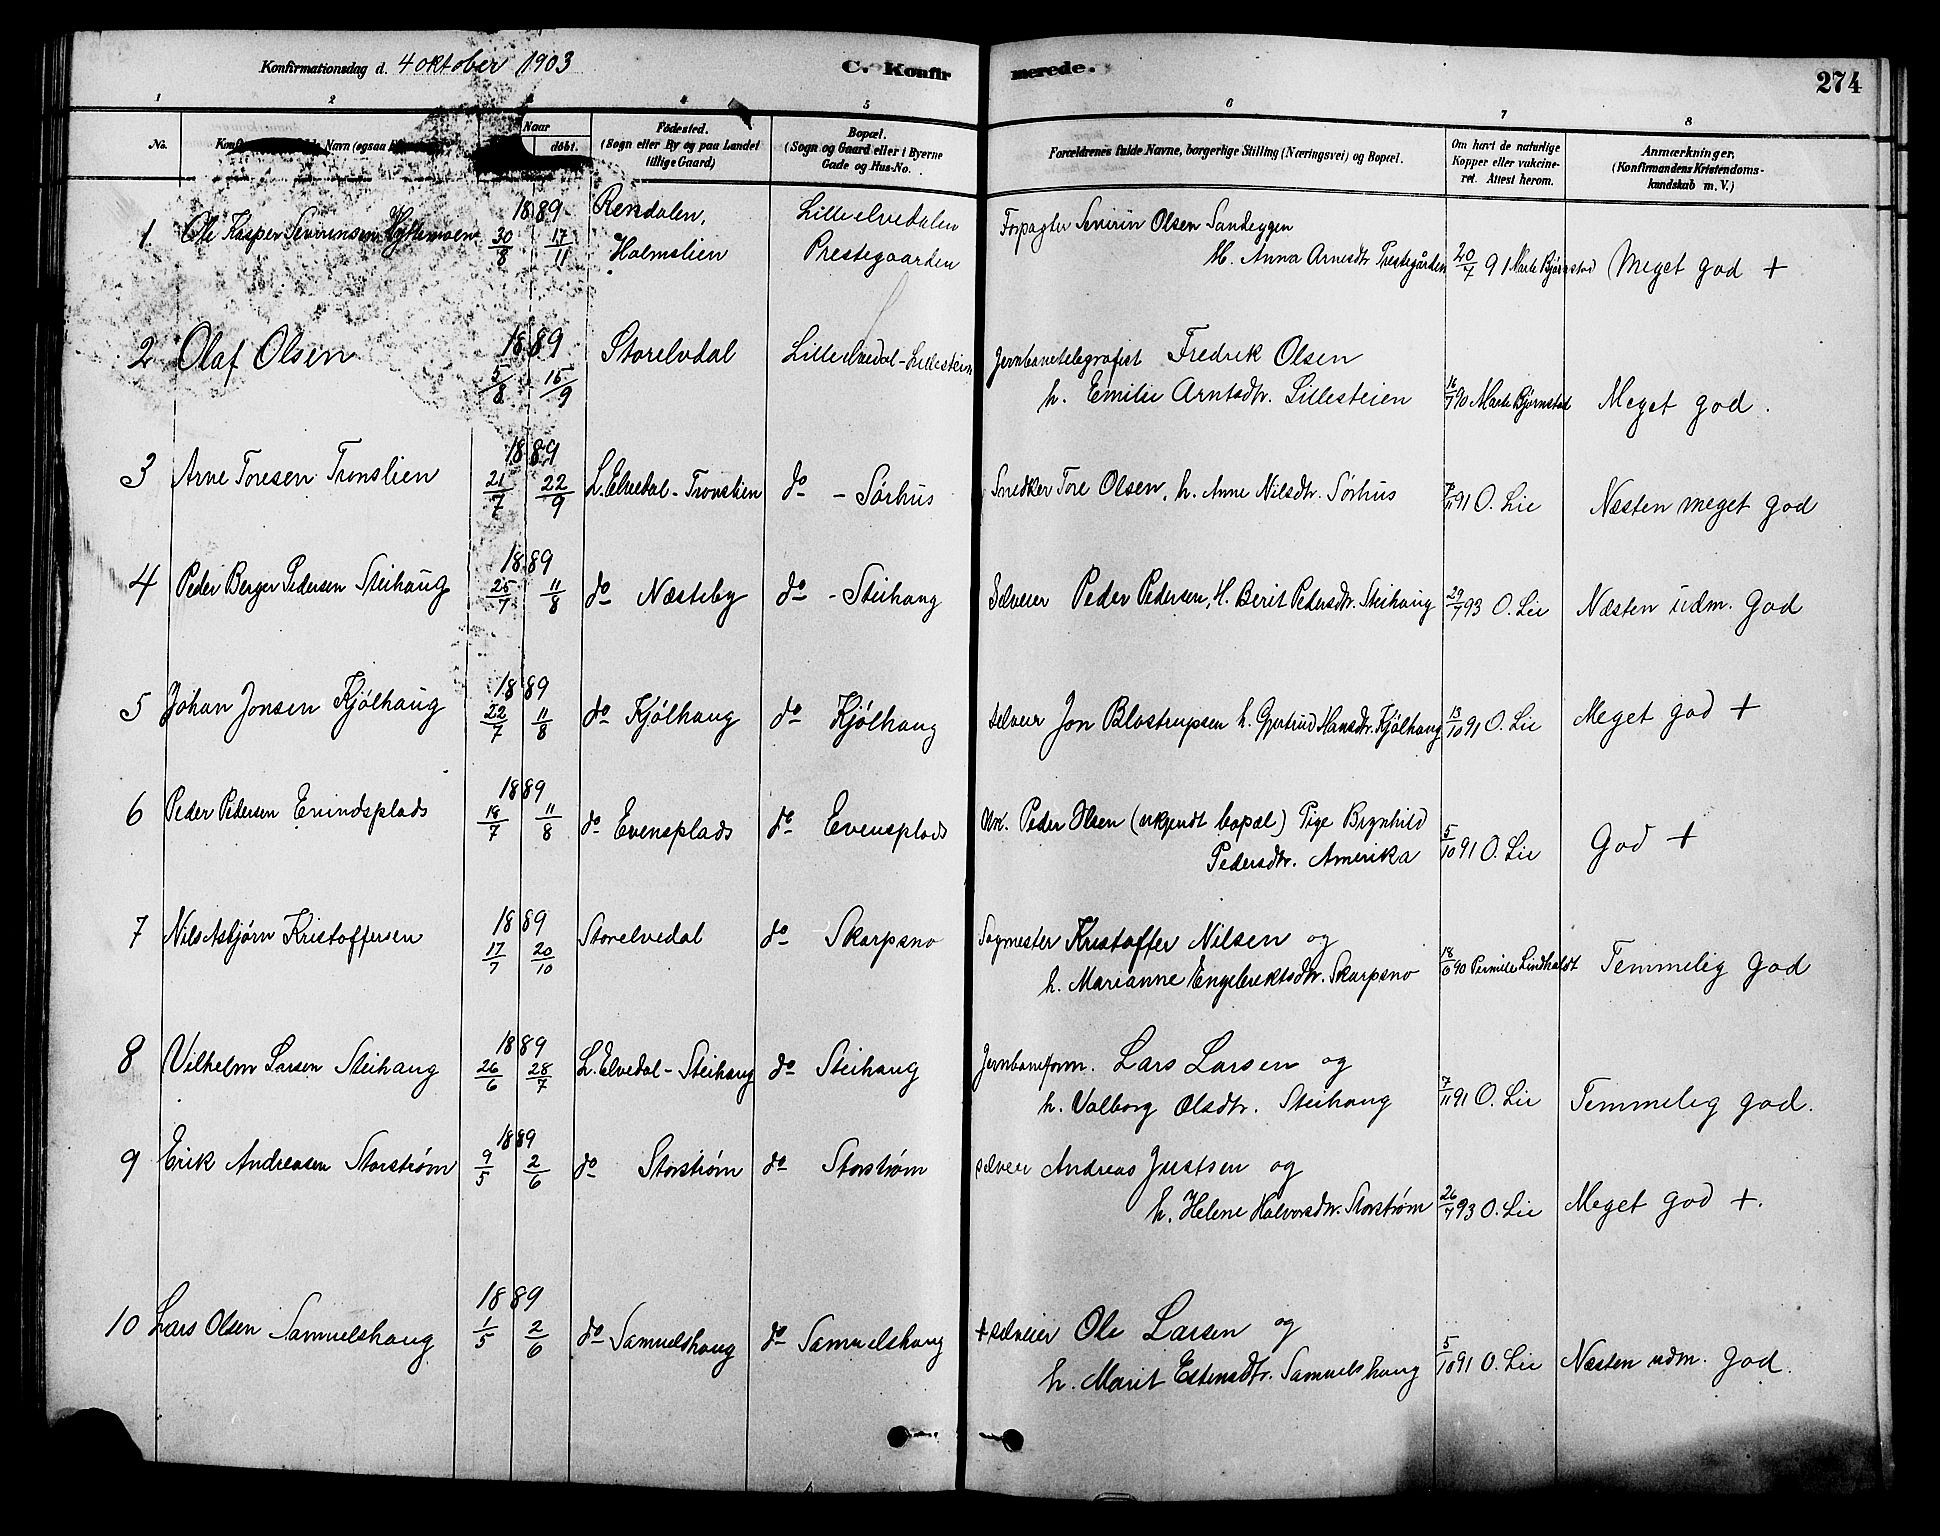 Konfirmationsdag d. 4 oktober 1903
C. Konfirmerede.
274
1 2 4 5 6 7 8
No. Navn (ogsaa Naar døbt. Fødested. (Sogn eller By og paa Landet tillige Gaard) Bopæl. (Sogn og Gaard eller i Byerne Gade og Hus-No. Forældrenes fulde Navne, borgerlige Stilling (Næringsvei) og Bopæl. Om havt de naturlige Kopper eller vakcineret. Attest herom. Anmærkninger. (Konfirmandens Kristendomskundskab m. V.)
1 Ole Kasper Severinsen 1889 30/8 17/11 Rendalen, Holmslien Lilleelvedalen Prestegaarden Forpagter Severin Olsen Sandeggen
H. Anna Arnesdtr Prestegården 20/7 91 Marte Bjørnstad Meget god +
2 Olaf Olsen 1889 5/8 15/9 Storelvdal Lilleelvedal - Lillesteien Jernbanetelegrafist Fredrik Olsen
h. Emilie Arntsdtr. Lillesteien 16/7 90 Marte Bjørnstad Meget god.
3 Arne Toresen Tronslien 1889 21/7 22/9 L. Elvedal - Tronslien do - Sørhus Snedker Tore Olsen, h. Anne Nilsdtr. Sørhus 91 O. Lie Næsten meget god
4 Peder Berger Pedersen Steihaug 1889 25/7 11/8 do Næsteby do - Steihaug Selveier Peder Pedersen, H. Berit Pedersdtr. Steihaug 29/7 93 O. Lie Næsten udm. god
5 Johan Jonsen Kjølhaug 1889 22/7 11/8 do Kjølhaug do Kjølhaug selveier Jon Blostrupsen h. Gjertrud Hansdtr. Kjølhaug 13/10 91 O. Lie Meget god +
6 Peder Pedersen Enindsplads 1889 18/7 11/8 do Evensplads do Evensplads Peder Olsen (ukjendt bopæl) Pige Brynhild
Pedersdtr. Amerika 5/10 91 O. Lie God +
7 Nils Asbjørn Kristoffersen 1889 17/7 20/10 Storelvedal do Skarpsno Sagmester Kristoffer Nilsen og
h. Marianne Engebrektsdtr. Skarpsno 90 Pernille Lindholdt Temmelig god
8 Vilhelm Larsen Steihaug 1889 26/6 28/7 L. Elvedal - Steihaug do Steihaug Jernbaneform. Lars Larsen og
h. Valborg Olsdtr. Steihaug 7/11 91 O. Lie Temmelig god.
9 Erik Andreasen Storstrøm 1889 9/5 2/6 do Storstrøm do Storstrøm selveier Andreas Justsen og
h. Helene Halvorsdtr. Storstrøm 26/7 93 O. Lie Meget god +.
10 Lars Olsen Samuelshaug 1889 1/5 2/6 do Samuelshaug do Samuelshaug + selveier Ole Larsen og
h. Marit Estensdtr. Samuelshaug 5/10 91 O. Lie Næsten udm. god.